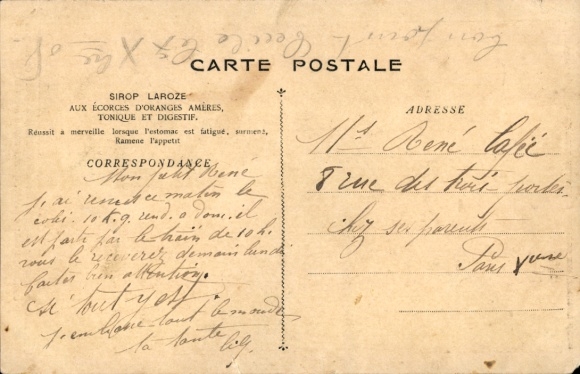 CARTE POSTALE
SIROP LAROZE
AUX ÉCORCES D'ORANGES AMÈRES,
TONIQUE ET DIGESTIF.
Réussit à merveille lorsque l'estomac est fatigué, surmené,
Ramene l'appetit
CORRESPONDANCE
Mon petit René
j'ai remis ce matin le
colis 10 K. g. rend. a dom. il
est parti par le train de 10 h.
vous le recevrez demain lundi
faites bien attention.
si tout y est
j'embrasse tout le monde
ta tante
ADRESSE
René
8 rue des trois portes
chez ses parents
Paris